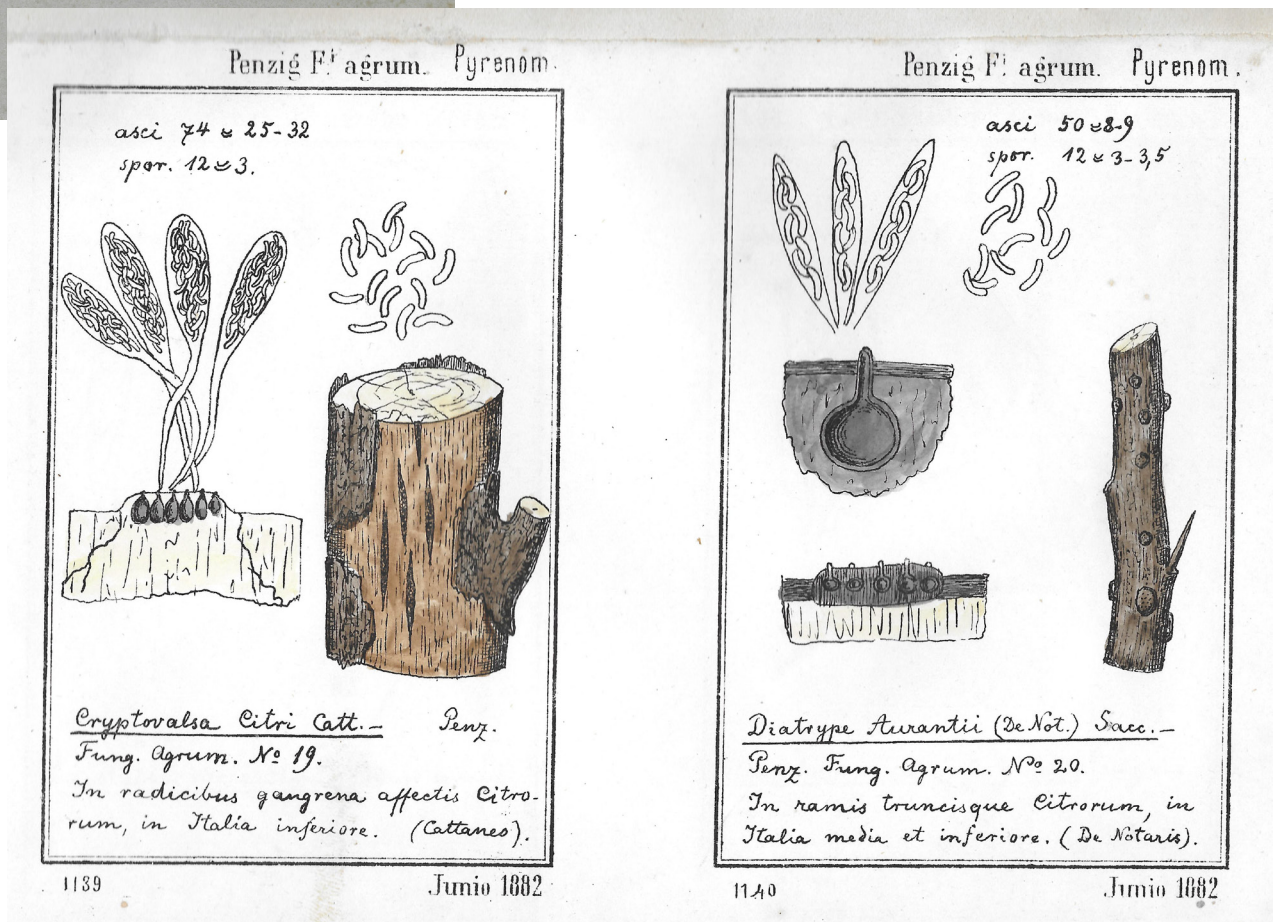 Penzig F.i agrum. Pyrenom.
asci 74 ≈ 25-32
spor. 12 ≈ 3.
Cryptovalsa Citri Catt.— Penz.
Fung. Agrum. No 19.
In radicibus gangrena affectis Citro-
rum, in Italia inferiore. (Cattaneo).
1139 Junio 1882
Penzig F.i agrum. Pyrenom.
asci 50 ≈ 8-9
spor. 12 ≈ 3-3,5
Diatrype Aurantii (De Not.) Sacc.—
Penz. Fung. Agrum. No 20.
In ramis truncisque Citrorum, in
Italia media et inferiore. (De Notaris).
1140 Junio 1882